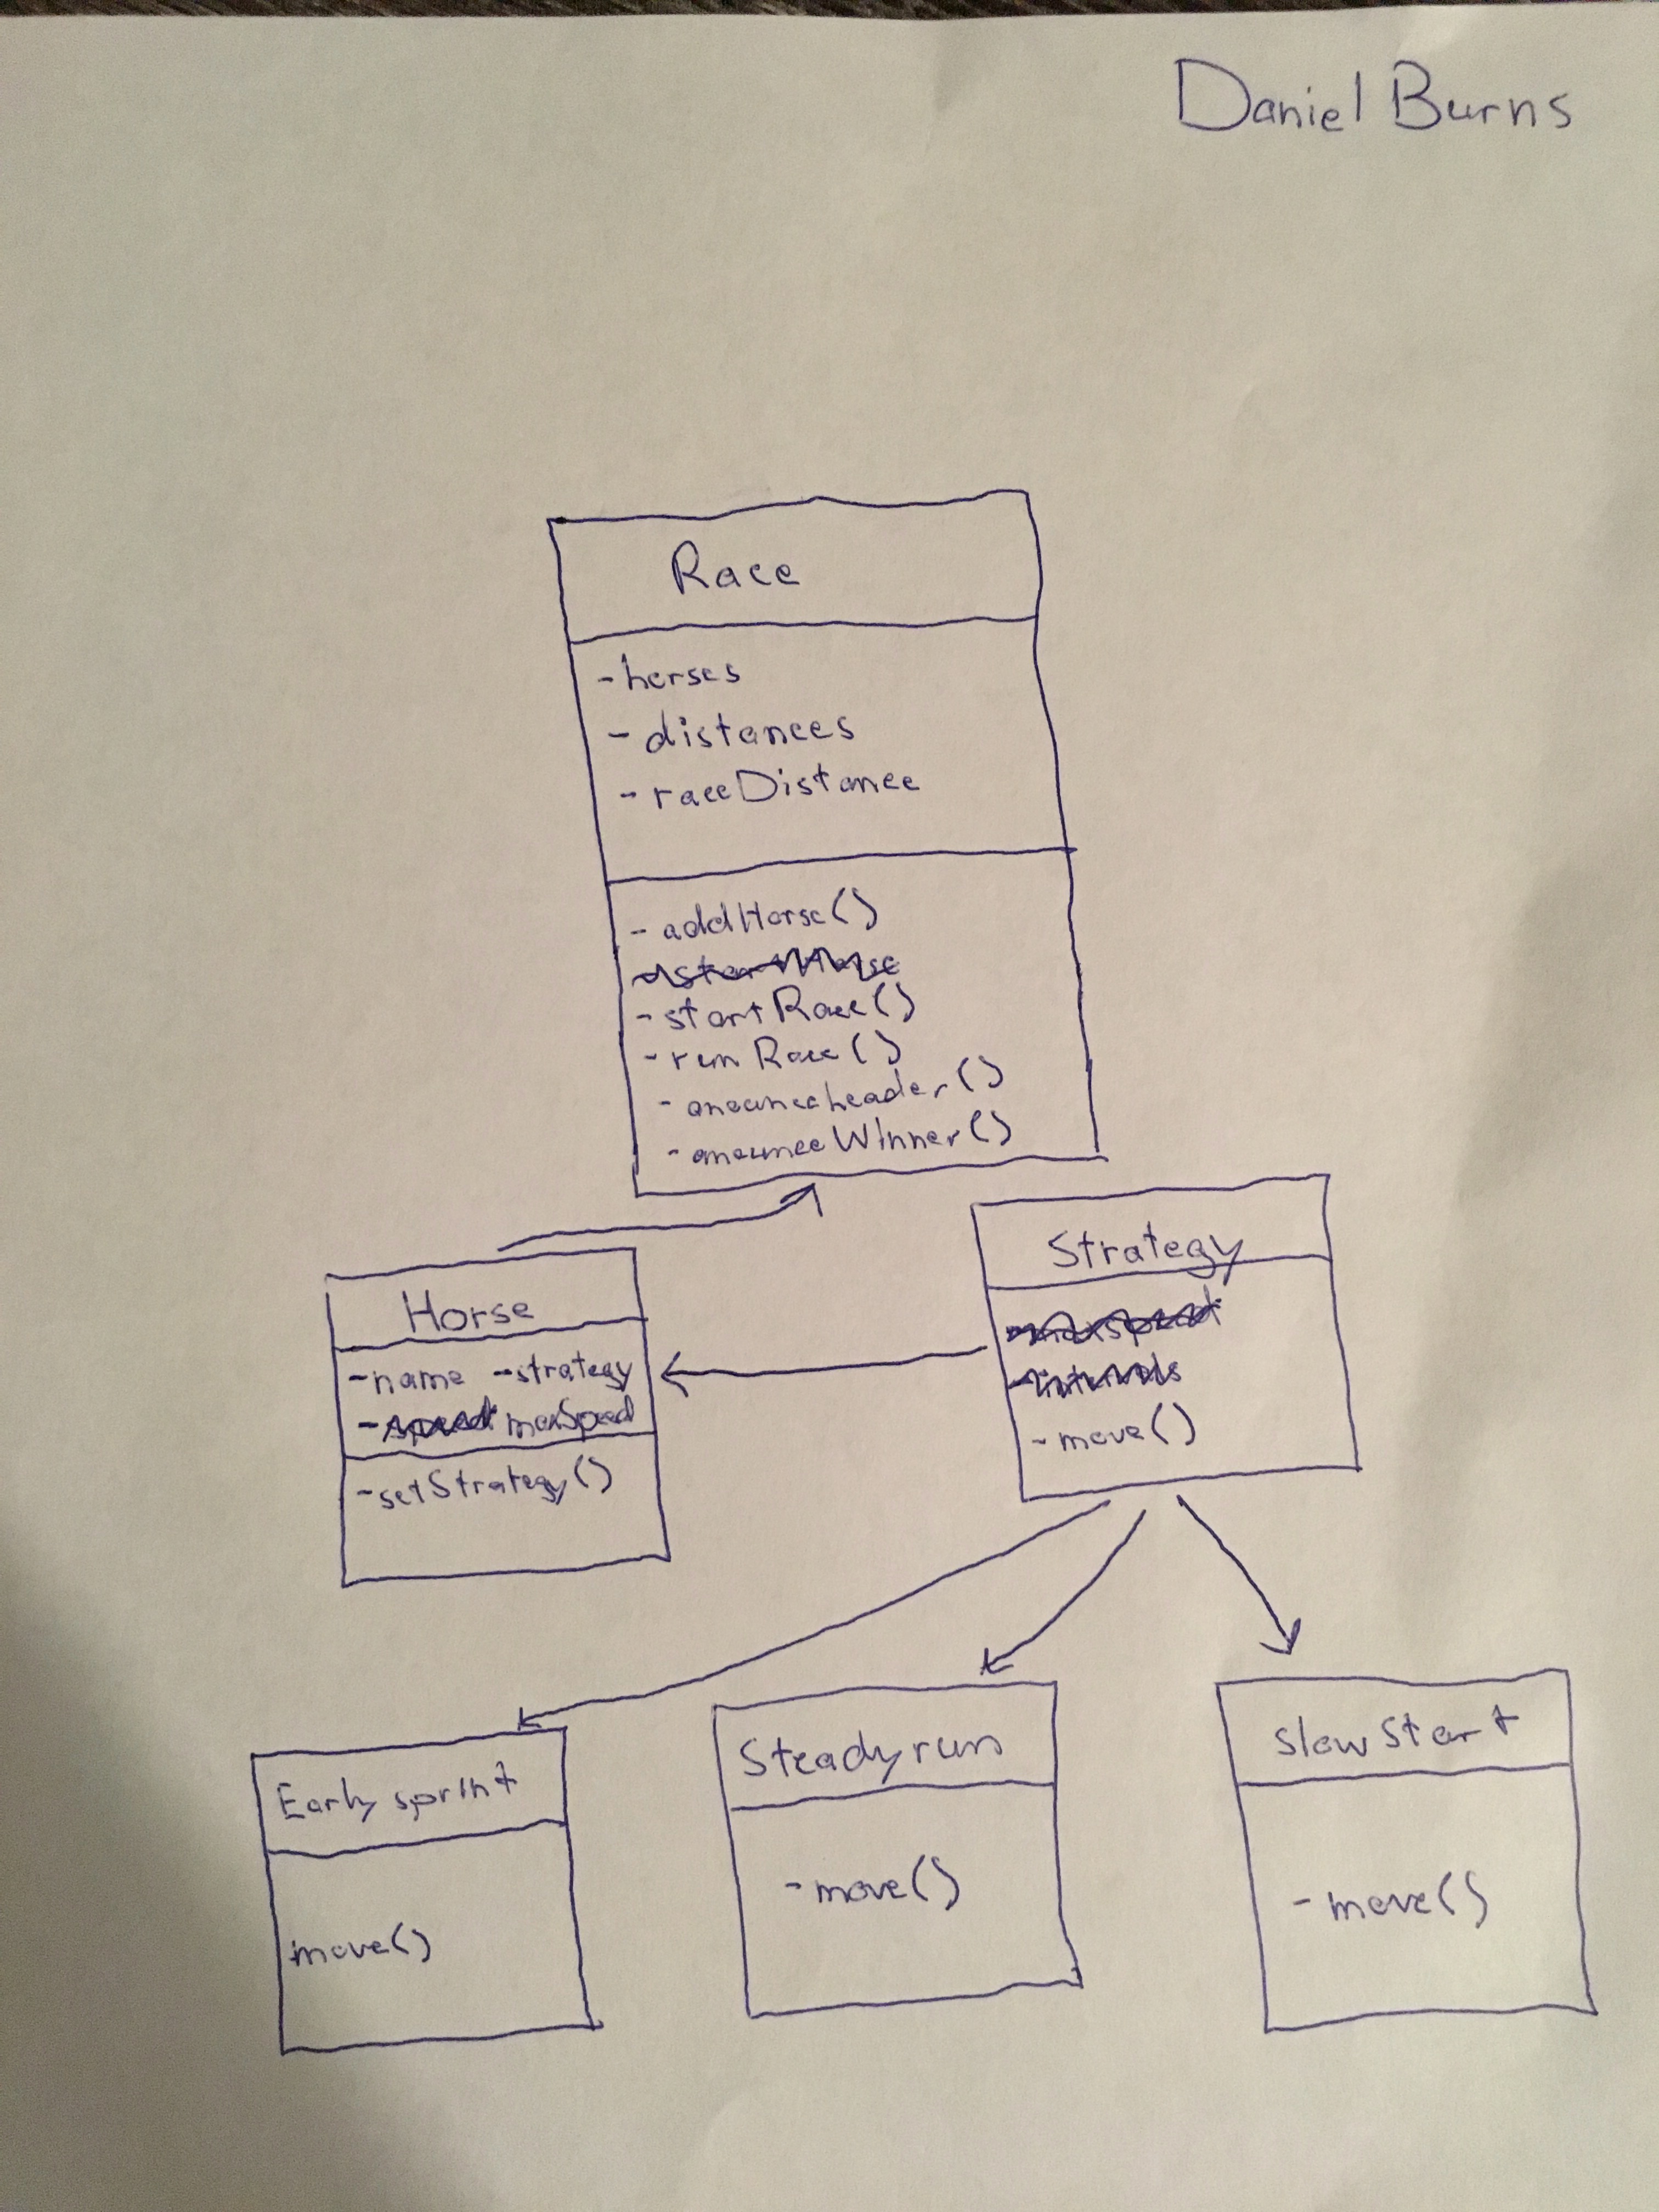 Daniel Burns
Race
-horses
- distances
- raceDistance
- addHorse()
- startRace()
- runRace()
- anounceLeader()
- anounceWinner()
Strategy
- move()
Horse
-name -strategy
- maxSpeed
-setStrategy()
Early sprint
move()
Steady run
- move()
slow start
- move()